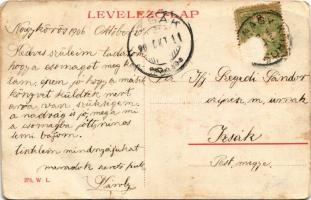 LEVELEZŐ-LAP
Nagykőrös 1906 Október
Kedves szüleim tudatom
hogy a csomagot meg kap
tam, épen jó hogy a másik
könyvet küldték mert
arra van szükségem.
a nadrág is jó, még a mi
a csomagba jött, nincs
semi bajom.
tisztelem mindnyájukat
maradok szerető fiuk
Károly
Ifj Szegedi Sándor
szíjgyár. m. urnak
Izsák
Pest megye.
IZSÁK
275, W. L.